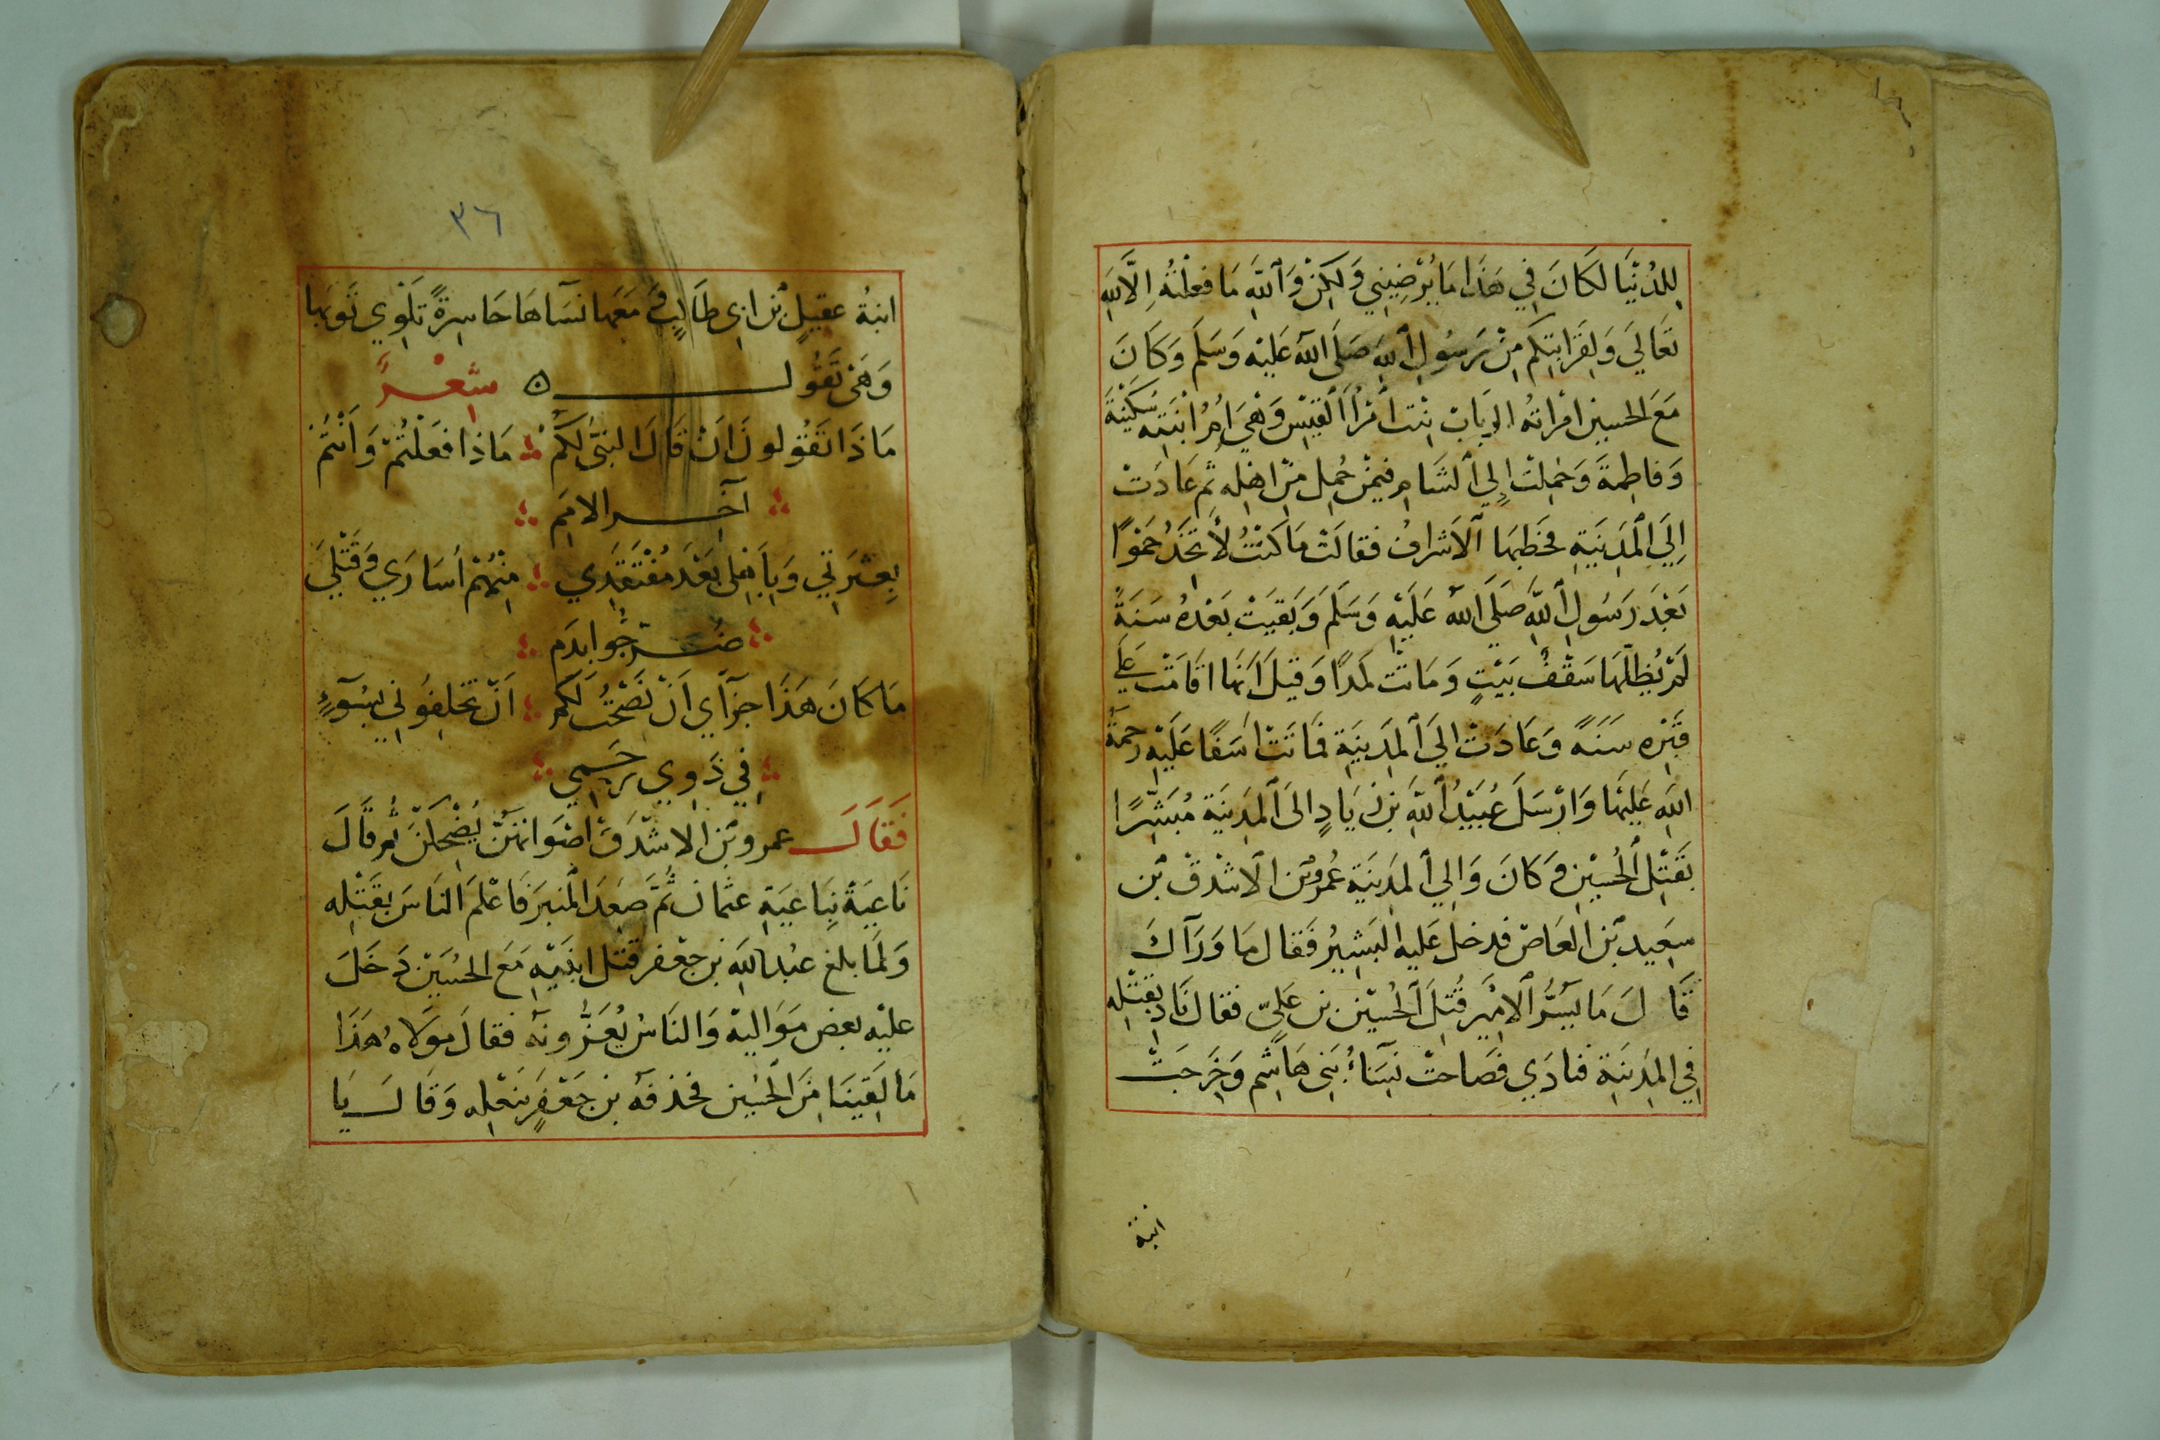 لِلدُنْيَا لكَانَ فِي هَذَا مَا يُرْضِينِي وَلَكِنْ وَٱللَّهِ مَا فعلْتهُ اِلَّا لِلَّهِ
تَعَالَي وَلِقَرَابَتِكُم مِنْ رَسُولِ ٱللَّهِ صَلَى اللَّه عَلَيْه وَسَلَم وَكَانَ
مَعَ الحُسين امْرَاتهُ الربَاب بنْت أمْرُأ القَيْس وَهْيَ اُمُ ابْنَتِه سُكيْنَةَ
وَفاطِمَةَ وَحُمِلَتْ اِلِي ٱلشَامِ فيمَنْ حُمِلِ مِنْ اهْلِه ثم عَادَتْ
اِلَي ٱلمَدِينَةِ فخَطبهَا ٱلاَشْرافُ فقالَتْ مَا كُنْتُ لأتَّخَذُ حَمْوًا
بَعْدَ رَسُولِ ٱللَّهِ صَلَي اللَّه عَلَيْهِ وَسَلَم وَبَقيَتْ بَعْدهُ سَنَةً
لَمْ يُظلّهَا سَقْفُ بَيْتٍ وَمَاتت كمَدًا وَقيلَ اَنهَا اقَامَتْ عَلَي
قَبْرِه سَنَةً وَعَادَتْ اِلَي ٱلمَدِينَةِ فمَاتَتْ اسَفًا عَلَيْهِ رَحمَةُ
اللَّهِ عَلَيْهَا وَارْسَلَ عُبَيْدُ ٱللَّهِ بْن زيَادٍ اِلىَ ٱلمَدِينَةِ مُبَشِّرًا
بقَتْلِ ٱلحُسَيْنِ وَكانَ وَالِي ٱلمَدِينَةِ عُمرو بْن ٱلاشْدَقْ بْن
سَعِيد بْن العَاصْ فدخل عَليْه البَشِيرُ فَقال مَا وَرَآكَ
قَالَ مَا يَسُرُّ ٱلامِيْرِ قُتِلَ ٱلحُسَيْن بن عَليّ فقال نَادِ بقَتْلِه
فِي المدِينَةِ فنادَي فصَاحتْ نِسَاءُ بَنِي هَاشِم وَخَرَجتْ
ابنة
٣٦
ابنةُ عقيلٍ بْن ابِي طَالبٍ وَمَعَهَا نسَآهَا حَاسِرَةً تَلْوِي ثَوبهَا
وَهْيَ تَقُول ۵ شِعْرً
مَاذَا تَقُولونَ اَنْ قَالَ النبَي لكمُ مَاذا فَعَلْتُمْ وَاَنْتُمْ
آخِر الامَم
بِعِتْرَتِي وَبِاَهْلي بَعْدَ مُفْتَقَدِي مِنْهُمْ أسَارَي وَقَتْلَي
ضُرّجُوا بدَم
مَا كَانَ هَذَا جَزَآي اَنْ نَصَحْتُ لَكم اَنْ تخْلِفُونِي بسُوَءٍ
فِي ذَوِي رَحِمي
فَقَالَ عمرو بْن الاشْدَق وَاصْوَاتهَنّ يَضْحكنَ ثم قالَ
نَاعِيَةً بِنَاعِيَةِ عثمان ثمَّ صَعِدَ المنبَر فَاعْلمَ النَاسَ بقَتْله
وَلَمَا بلغ عبْد اللَّهِ بن جعْفر قتل ابنَيْه مَعَ الحُسَيْن دَخَلَ
عليْه بعض مَوَاليه وَالنَاسُ يُعَزُّونه فقالَ مَوَلاهُ هَذَا
مَا لَقِيَنَا مِنَ الحُسَين فخذفهُ بن جَعْفَرٍ بنَعْلِه وَقَالَ يَا